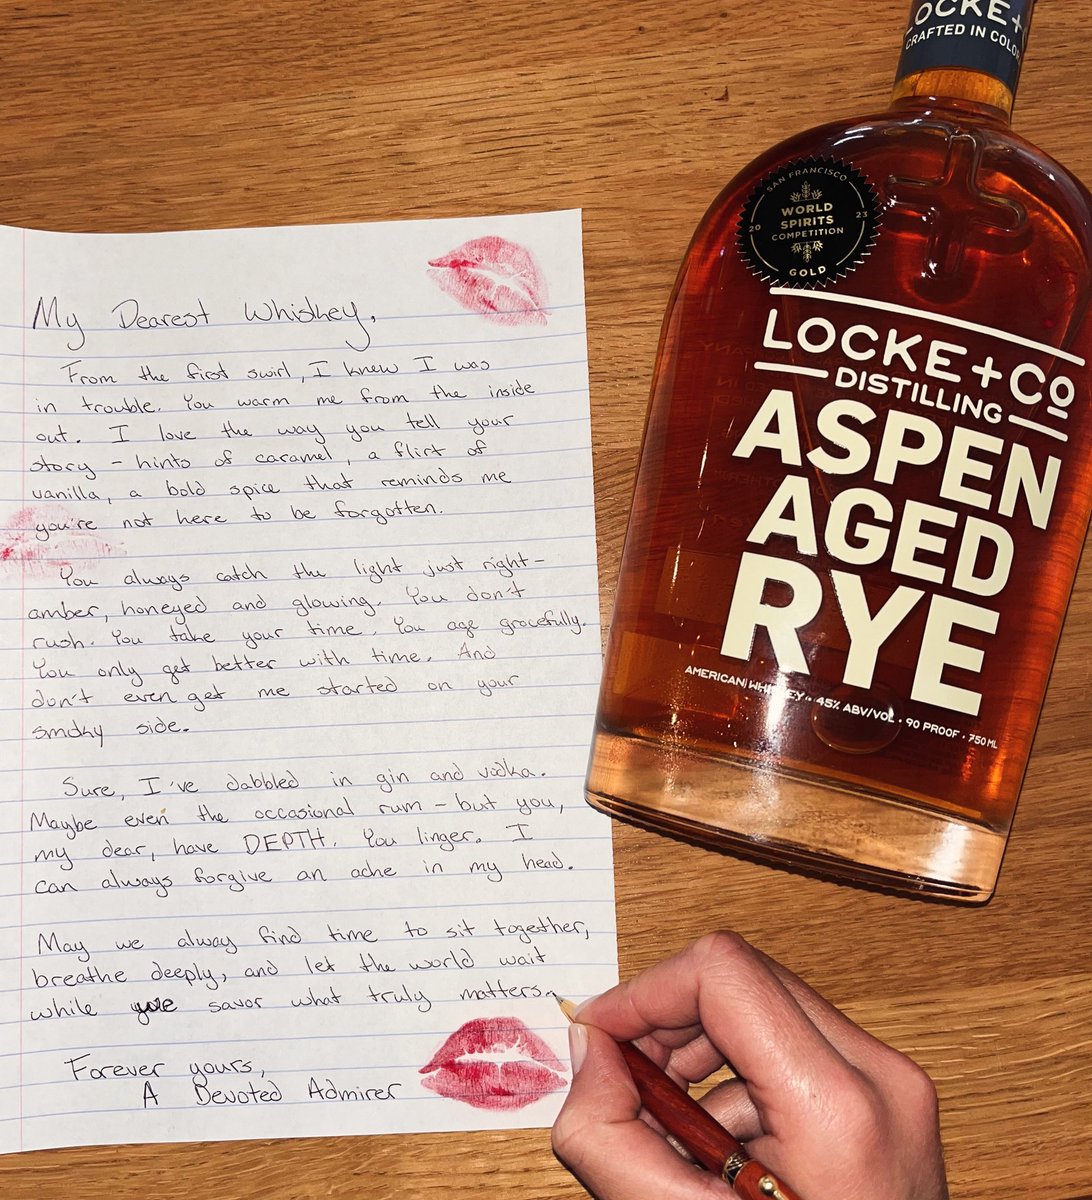 My Dearest Whiskey,
From the first swirl, I knew I was
in trouble. You warm me from the inside
out. I love the way you tell your
story - hints of caramel, a flirt of
vanilla, a bold spice that reminds me
you're not here to be forgotten.
You always catch the light just right -
amber, honeyed and glowing. You don't
rush. You take your time. You age gracefully.
You only get better with time. And
don't even get me started on your
smoky side.
Sure, I've dabbled in gin and vodka.
Maybe even the occasional rum - but you,
my dear, have DEPTH. You linger. I
can always forgive an ache in my head.
May we alway find time to sit together,
breathe deeply, and let the world wait
while we savor what truly matters.
Forever yours,
A Devoted Admirer
LOCKE+
CRAFTED IN COLO
SAN FRANCISCO
WORLD
SPIRITS
20 COMPETITION 23
GOLD
LOCKE+CO
DISTILLING
ASPEN
AGED
RYE
AMERICAN WHISKEY · 45% ABV/VOL · 90 PROOF · 750 ML